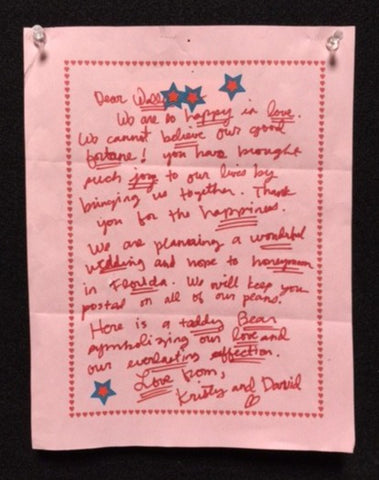 Dear
We are so happy in love.
We cannot believe our good
fortune! you have brought
such joy to our lives by
bringing us together. Thank
you for the happiness.
We are planning a wonderful
wedding and hope to honeymoon
in Florida. We will keep you
posted on all of our plans.
Here is a teddy Bear
symbolizing our love and
our everlasting affection.
Love from,
Kristy and David